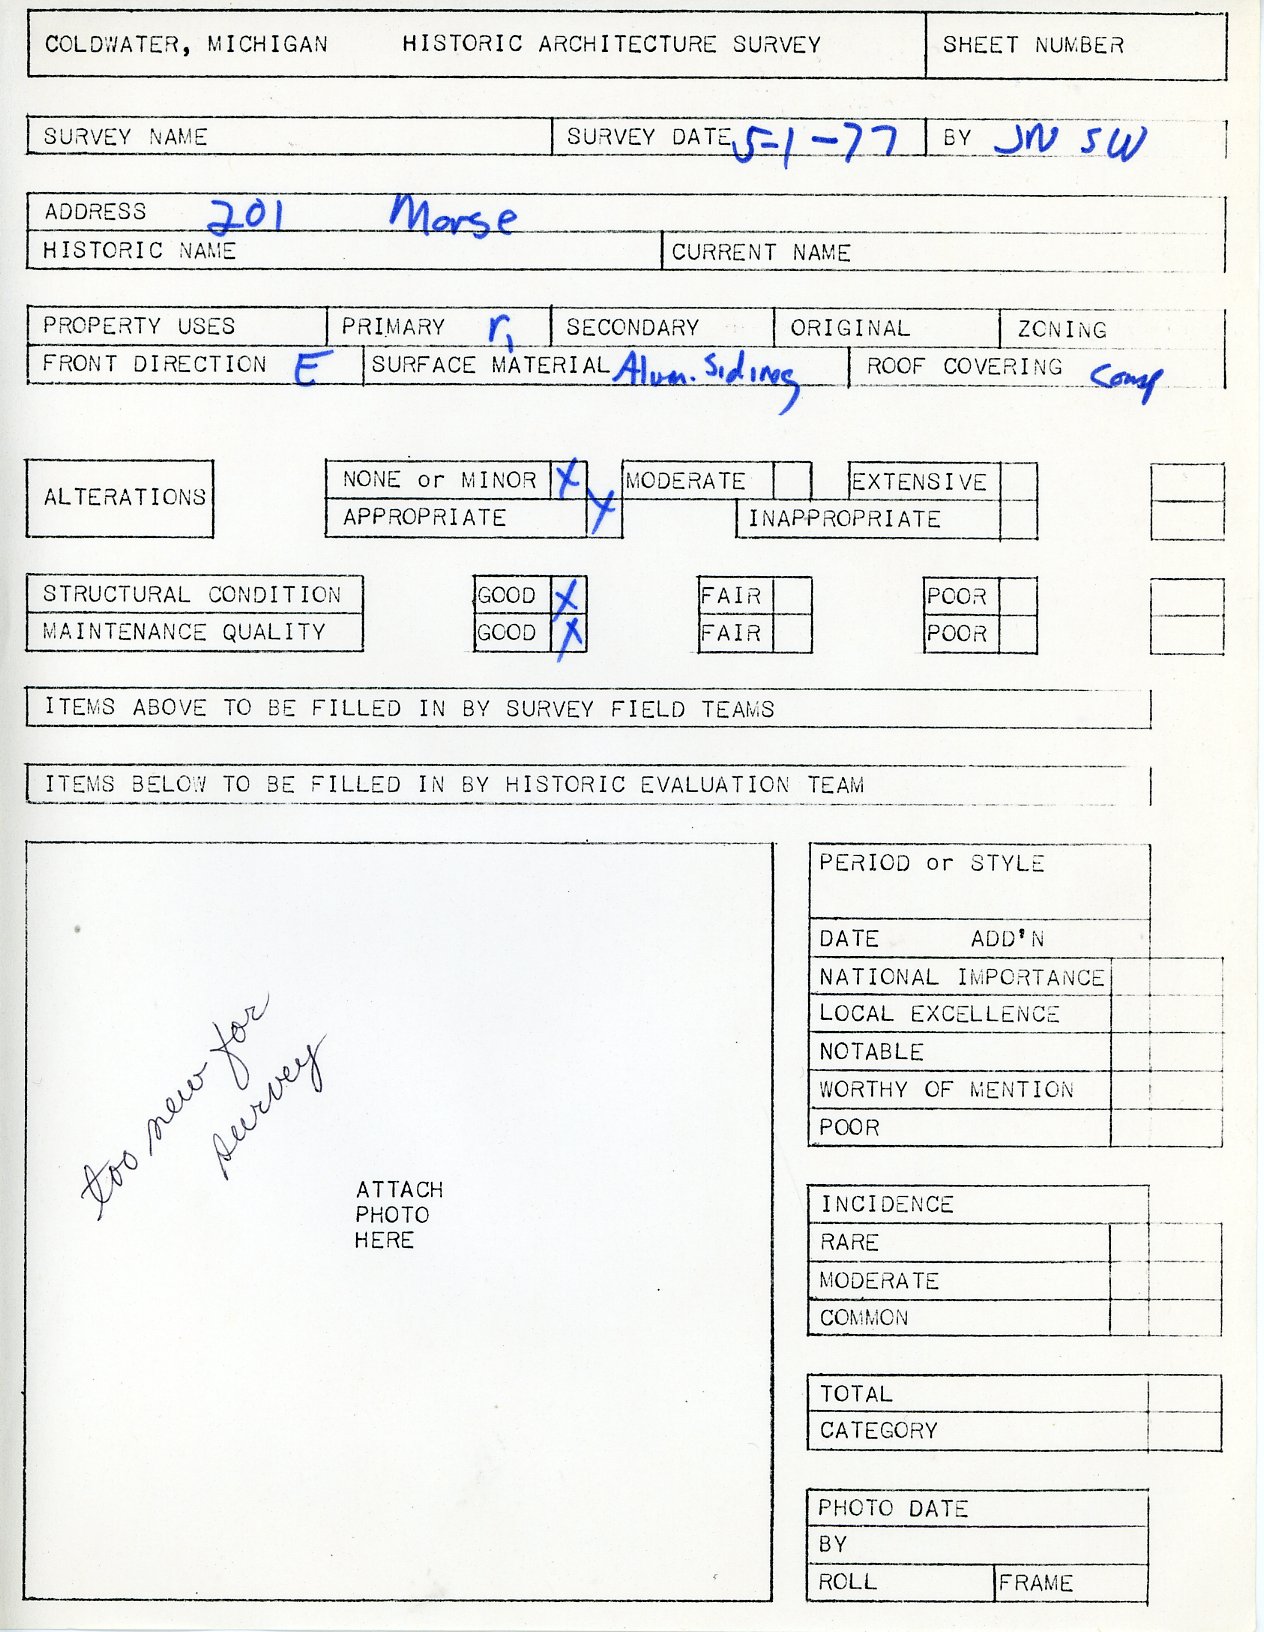 COLDWATER, MICHIGAN HISTORIC ARCHITECTURE SURVEY SHEET NUMBER
SURVEY NAME SURVEY DATE 5-1-77 BY JN SW
ADDRESS 201 Morse
HISTORIC NAME CURRENT NAME
PROPERTY USES PRIMARY r, SECONDARY ORIGINAL ZONING
FRONT DIRECTION E SURFACE MATERIAL Alum. Siding ROOF COVERING Comp
ALTERATIONS NONE or MINOR X MODERATE EXTENSIVE
APPROPRIATE X INAPPROPRIATE
STRUCTURAL CONDITION GOOD X FAIR POOR
MAINTENANCE QUALITY GOOD X FAIR POOR
ITEMS ABOVE TO BE FILLED IN BY SURVEY FIELD TEAMS
ITEMS BELOW TO BE FILLED IN BY HISTORIC EVALUATION TEAM
too new for
survey
ATTACH
PHOTO
HERE
PERIOD or STYLE
DATE ADD'N
NATIONAL IMPORTANCE
LOCAL EXCELLENCE
NOTABLE
WORTHY OF MENTION
POOR
INCIDENCE
RARE
MODERATE
COMMON
TOTAL
CATEGORY
PHOTO DATE
BY
ROLL FRAME